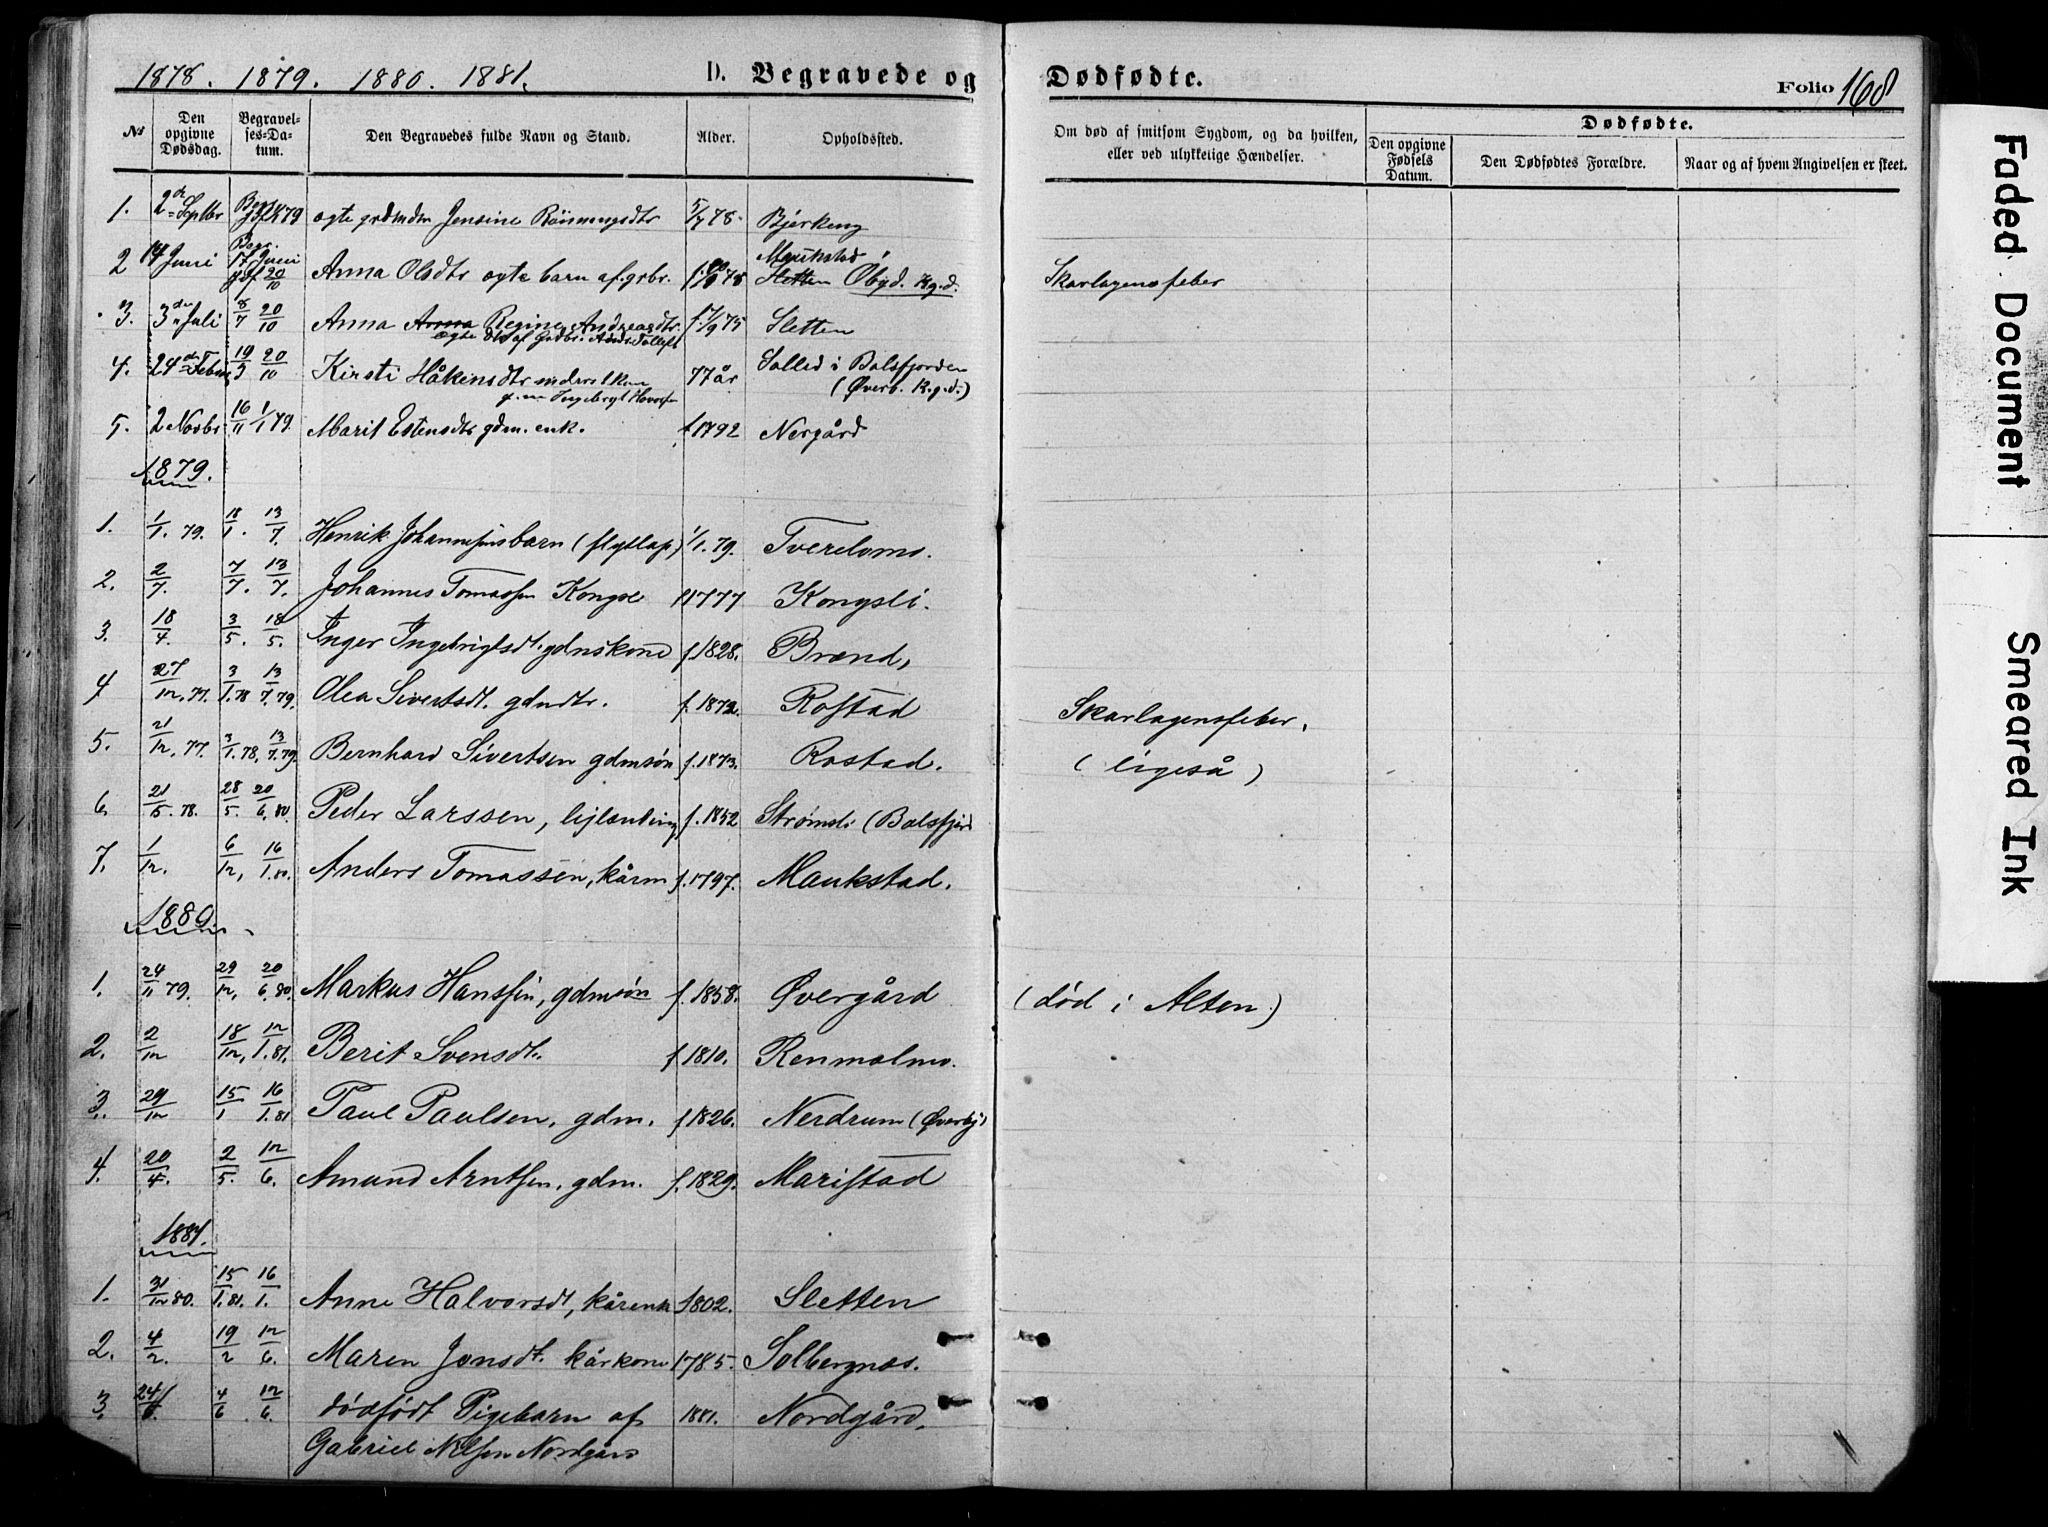 1878. 1879. 1880. 1881. D. Begravede og Dødfødte. Folio 168
No Den opgivne Dødsdag. Begravelses-Datum. Den Begravedes fulde Navn og Stand. Alder. Opholdssted. Om død af smitsom Sygdom, og da hvilken, eller ved ulykkelige Hændelser. Dødfødte.
Den opgivne Fødsels Datum. Den Dødfødtes Forældre. Naar og af hvem Angivelsen er skeet.
1. 2den Septbr ægte Jensine 5/7 78 Bjerkeng
2 14 Juni Begr. 17 Juni 20/10 Anna Olsdtr ægte barn af grbr. Sletten Øbyd. Kg.d. Skarlagensfeber
3. 3die Juli 8/7 20/10 Anna Regine Andreasdtr f. 75 Sletten
ægte dtr af Grdbr.
4. 24de Febr 19/3 20/10 Kirsti Håkensdtr 77 år Salled i Balsfjorden
(Øverb. Kg.d.)
5. 2 Novbr 16/11 1/1 79 Marit Estensdtr gdm. enk. f. 1792 Nergård
1879.
1. 1/1. 79. 18/1. 13/7. Henrik Johannesens barn (flytlap) 1/1. 79. Tverelvmo.
2. 2/7. 7/7. 13/7. Johannes Tomassen Kongsl f. 1777 Kongsli.
3. 18/4. 3/5. 18/5. Inger Ingebrigtsdt. gdmskone f. 1828. Brand,
4 27/12. 77. 3/1. 78 13/7. 79. Olea Sivertsdt. gdmdtr. f. 1872. Rostad Skarlagensfeber.
5. 21/12. 77. 3/1. 78, 13/7. 79. Bernhard Sivertsen gdmsøn f. 1873. Rostad. (ligeså)
6. 21/5. 78. 28/5. 20/6. 80. Peder Larssen, lejlænding f. 1852 Strømsli (Balsfjord
7. 1/12. 6/12, 16/1. 80. Anders Tomassen, kårm f. 1797. Maukstad.
1880.
1. 24/11 79. 29/12, 20/6. 80. Markus Hanssen, gdmsøn f. 1858. Øvergård (død i Alten)
2. 2/12 18/12, 12/1. 81. Berit Svensdt. f. 1810. Renmælmo.
3. 29/12 15/1 16/1. 81 Paul Paulsen, gdm. f. 1826. Nerdrum (Øverby)
4. 20/4. 2/5. 12/6. Amund Arntsen, gdm. f. 1829. Maristad
1881.
1. 31/12 80. 15/1. 81. 16/1. Anne Halvorsdt, kårenk 1802. Sletten
2. 4/2. 19/2 12/6. Maren Jonsdt. kårkone 1785. Solbergnæs.
3. 24/5. 4/6. 12/6. dødfødt Pigebarn af 1881. Nordgård,
Gabriel Nilsen Nordgård
Faded Document
Smeared Ink